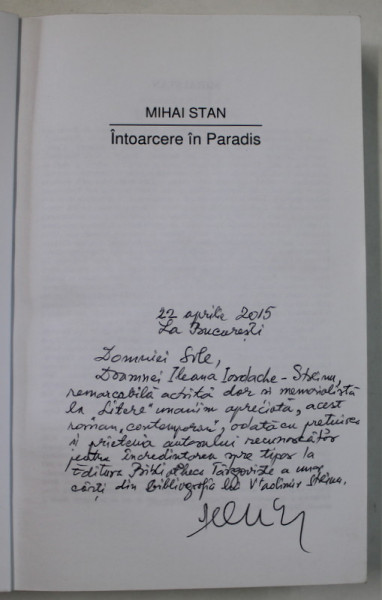 MIHAI STAN
Întoarcere în Paradis
22 aprilie 2015
La București
Domniei Sale,
Doamnei Ileana Iordache-Streinu,
remarcabilă actriță dar și memorialistă
la "Litere" unanim apreciată, acest
roman "contemporan", odată cu prețuirea
și prietenia autorului recunoscător
pentru încredințarea spre tipar la
Editura Bibliotheca Târgoviște a unei
cărți din Bibliografia lui Vladimir Streinu.